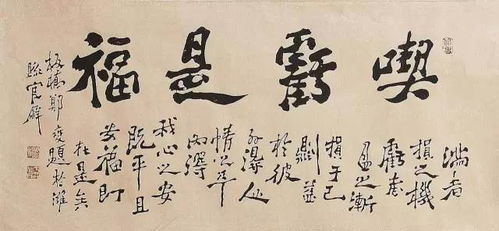 喫虧是福
滿者
損之機
虧者
盈之漸
損於己
則益
於彼
外得人
情之平
內得
我心之安
既平且
安福即
在是矣
板橋鄭燮題於濰
縣官廨